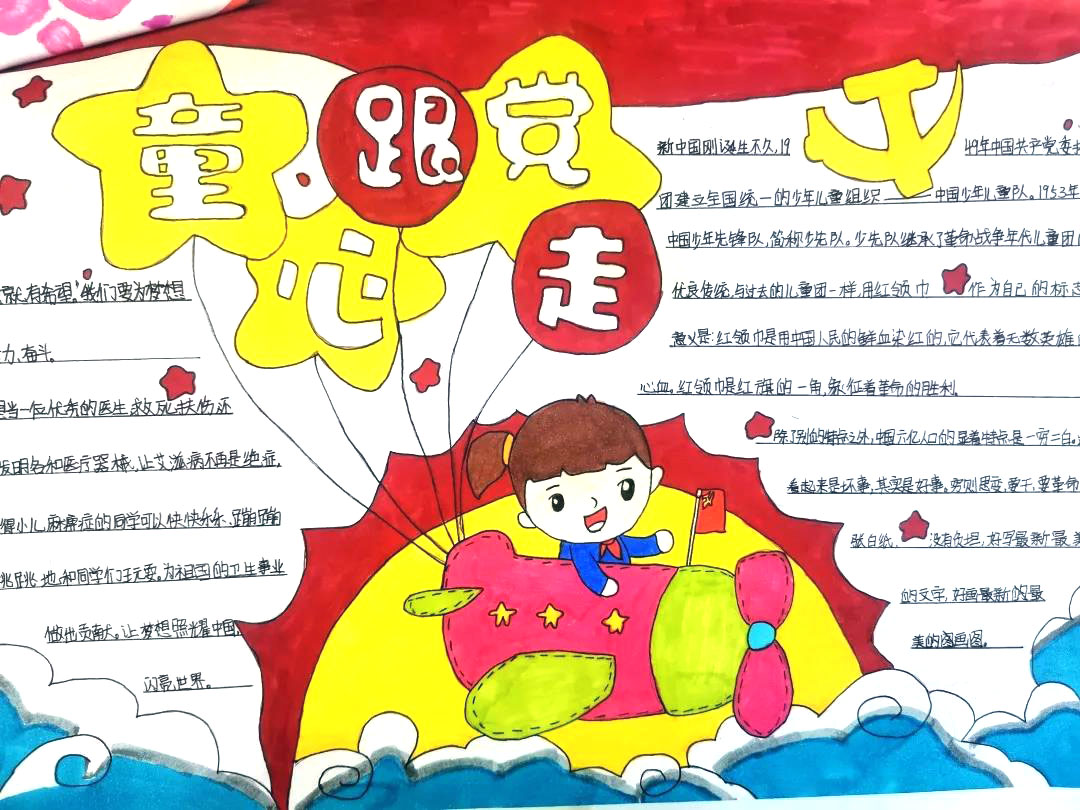 童跟党
心走
就有希望,"我们要为梦想
力、奋斗。
当一位优秀的医生,救死扶伤,还
发明各种医疗器械,让艾滋病不再是绝症,
得小儿麻痹症的同学可以快快乐乐、蹦蹦
跳跳地,和同学们玩耍。为祖国的卫生事业
做出贡献大。让梦想照耀中国,
闪亮世界。
新中国刚诞生不久,19
49年中国共产党委
团建立全国统一的少年儿童组织——中国少年儿童队。1953年
中国少年先锋队,简称少先队。少先队继承了革命战争年代儿童团
优良传统,与过去的儿童团一样,用红领巾作为自己的标志
意义是:红领巾是用中国人民的鲜血染红的,它代表着无数英雄
心血。红领巾是红旗的一角,象征着革命的胜利。
除了别的特点之外,中国六亿人口的显着特点是一穷二白。
看起来是坏事,其实是好事。穷则思变,要干,要革命
张白纸、没有负担,好写最新最美
的文字,好画最新的最
美的图画图。